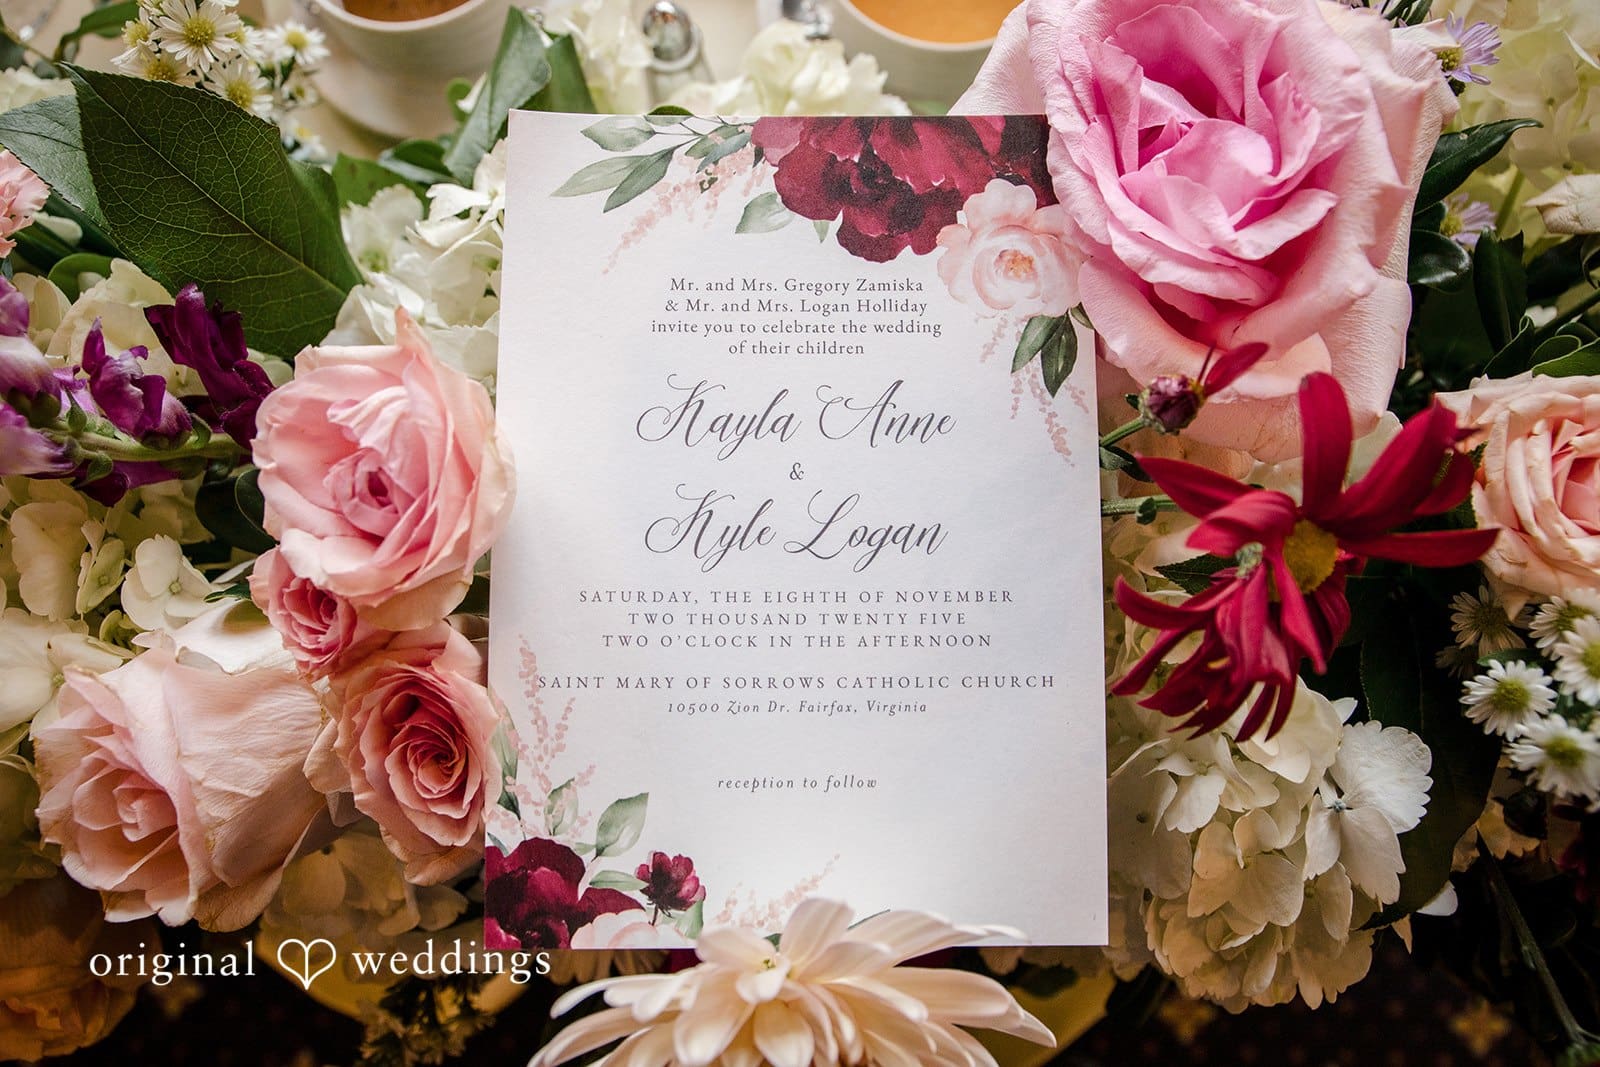 Mr. and Mrs. Gregory Zamiska
& Mr. and Mrs. Logan Holliday
invite you to celebrate the wedding
of their children
Kayla Anne
&
Kyle Logan
SATURDAY, THE EIGHTH OF NOVEMBER
TWO THOUSAND TWENTY FIVE
TWO O'CLOCK IN THE AFTERNOON
SAINT MARY OF SORROWS CATHOLIC CHURCH
10500 Zion Dr. Fairfax, Virginia
reception to follow
original weddings